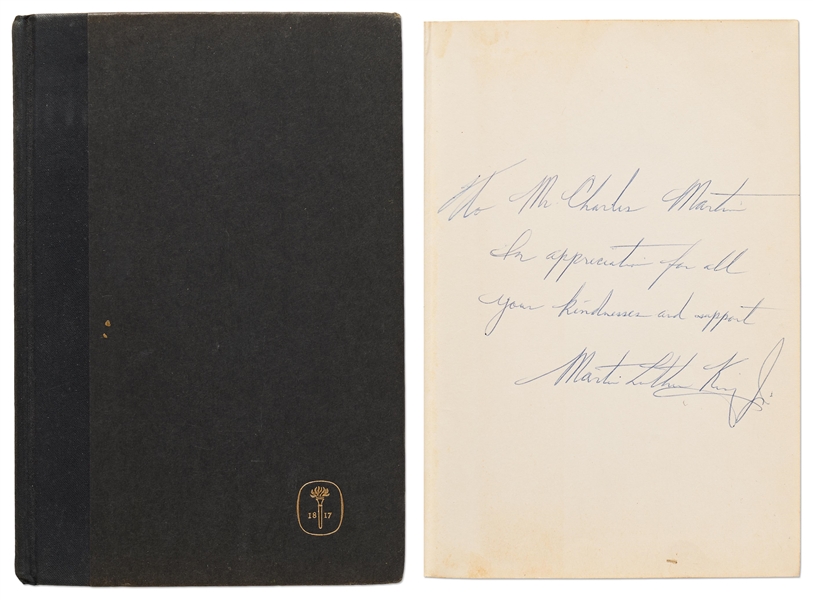 18 17
To Mr. Charles Martin
In appreciation for all
your kindnesses and support
Martin Luther King Jr.